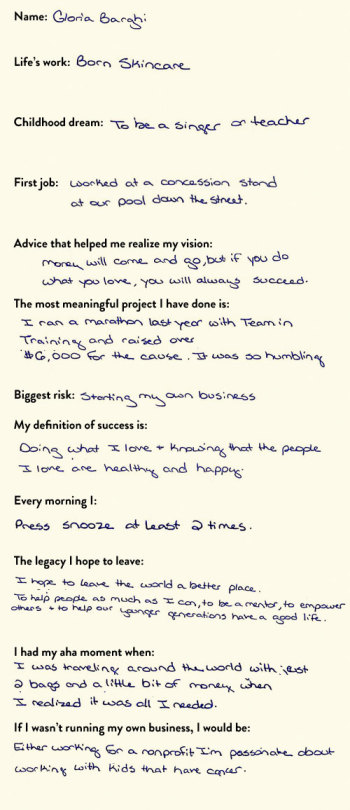 Name: Gloria Barghi
Life's work: Born Skincare
Childhood dream: To be a singer or teacher
First job: worked at a concession stand
at our pool down the street.
Advice that helped me realize my vision:
money will come and go, but if you do
what you love, you will always succeed.
The most meaningful project I have done is:
I ran a marathon last year with Team in
Training and raised over
$6,000 for the cause. It was so humbling
Biggest risk: Starting my own business
My definition of success is:
Doing what I love + knowing that the people
I love are healthy and happy.
Every morning I:
Press snooze at least 2 times.
The legacy I hope to leave:
I hope to leave the world a better place.
To help people as much as I can, to be a mentor, to empower
others + to help our younger generations have a good life.
I had my aha moment when:
I was traveling around the world with just
2 bags and a little bit of money when
I realized it was all I needed.
If I wasn't running my own business, I would be:
Either working for a nonprofit I'm passionate about
working with kids that have cancer.